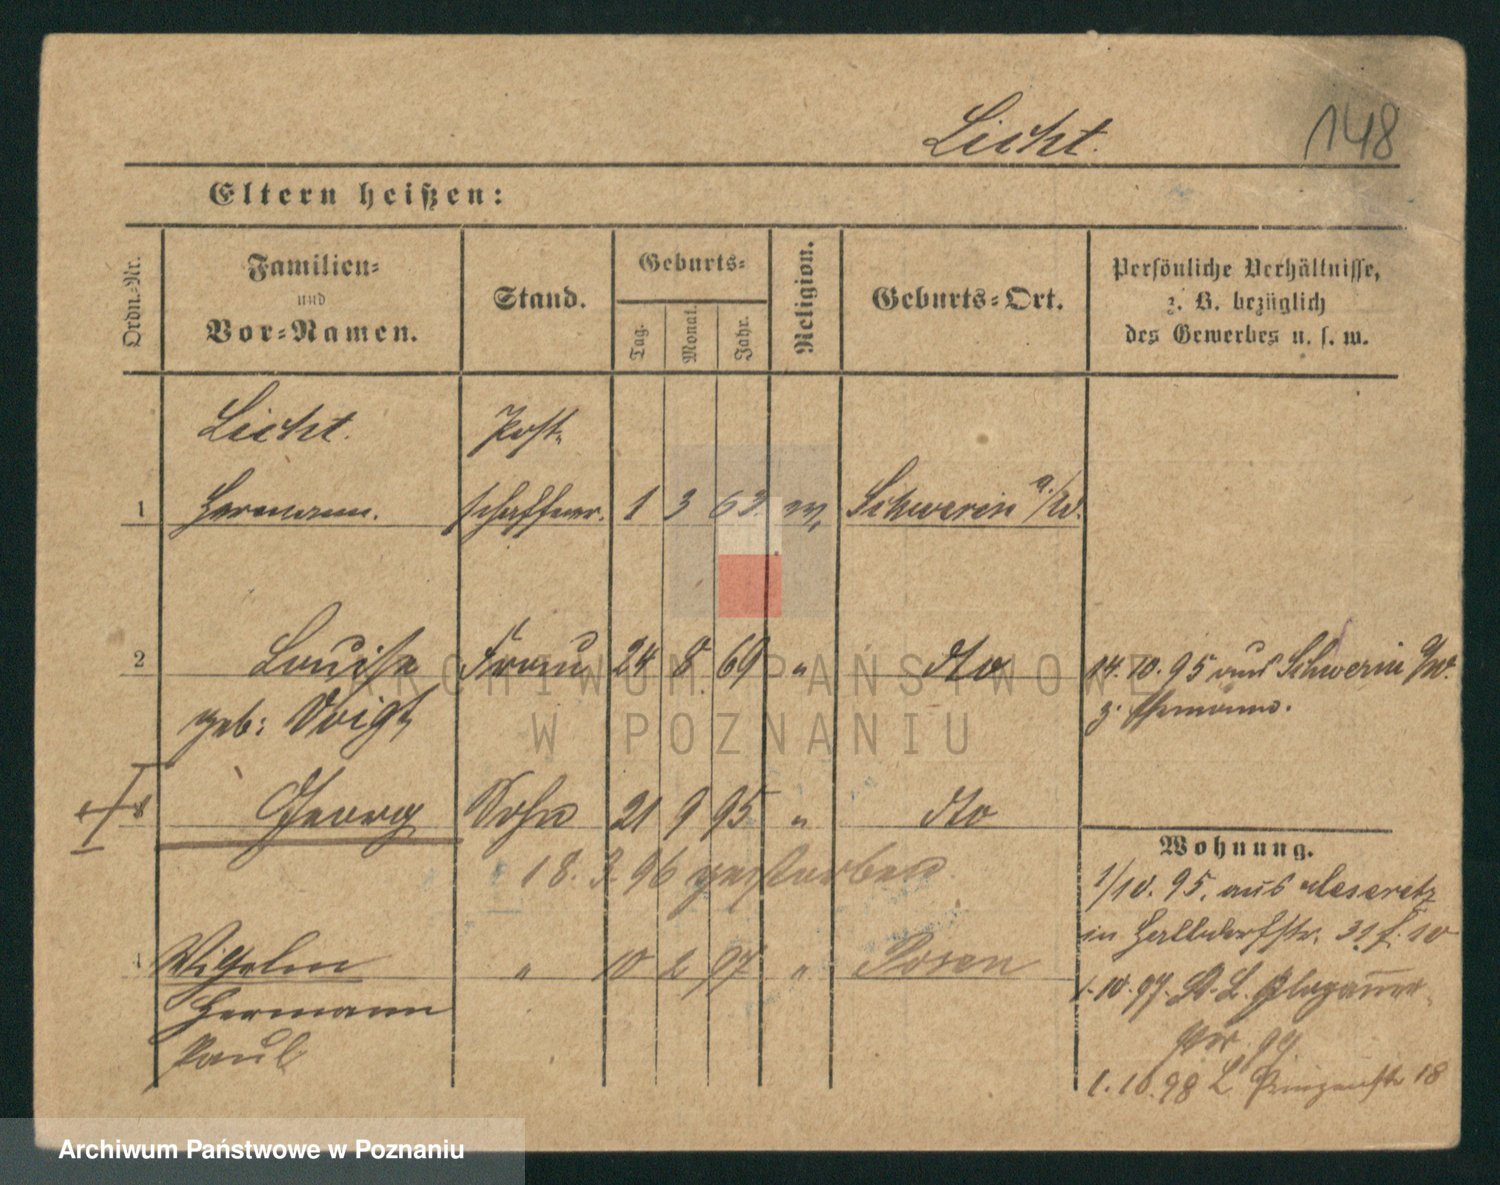 Licht.
148
Eltern heißen:
Ordn.-Nr.
Familien-
und
Vor-Namen.
Stand.
Geburts-
Tag.
Monat.
Jahr.
Religion.
Geburts-Ort.
Persönliche Verhältnisse,
z. B. bezüglich
des Gewerbes u. s. w.
Licht. Post-
1 Hermann. schaffner. 1 3 63 Schwerin a/W.
2 Louise Frau 24 8 69 " dto 14. 10. 95 aus Schwerin a/W.
geb: Voigt z. Ehemann.
Georg Sohn 21 9 95 " dto
18. 3. 96 gestorben
Wohnung.
1/10. 95. aus Meseritz
in Halldorfstr. 31
Wilhelm " 10 2 97 " Posen
Hermann
Paul
1.10.97. St. L. Glogauer-
1.10.98 L. Prinzenstr 18
ARCHIWUM PAŃSTWOWE
W POZNANIU
Archiwum Państwowe w Poznaniu